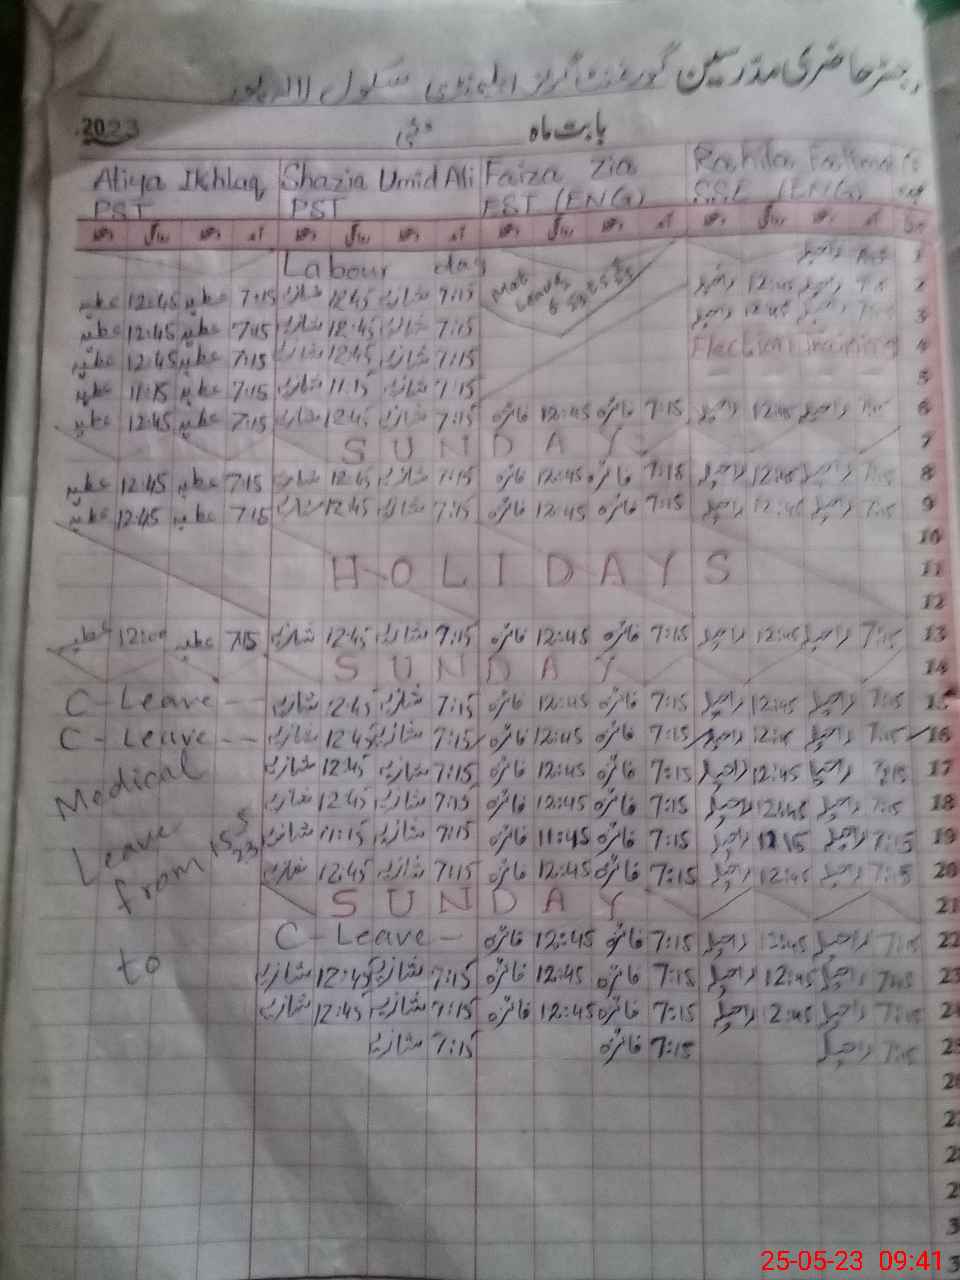 رجسٹر حاضری مدرسین گورنمنٹ گرلز ایلیمنٹری سکول
2023 مئی بابت ماہ
Atiya Ikhlaq Shazia Umid Ali Faiza Zia Rahila
PST PST EST (ENG) SSE (ENG)
Labour day 1
عطیہ 12:45 عطیہ 7:15 شازیہ 12:45 شازیہ 7:15 Mat Leave راحیلہ 12:45 راحیلہ 7:15 2
عطیہ 12:45 عطیہ 7:15 شازیہ 12:45 شازیہ 7:15 راحیلہ 12:45 راحیلہ 7:15 3
عطیہ 12:45 عطیہ 7:15 شازیہ 12:45 شازیہ 7:15 Election Training 4
عطیہ 11:15 عطیہ 7:15 شازیہ 11:15 شازیہ 7:15 5
عطیہ 12:45 عطیہ 7:15 شازیہ 12:45 شازیہ 7:15 فائزہ 12:45 فائزہ 7:15 راحیلہ 12:45 راحیلہ 7:15 6
SUNDAY 7
عطیہ 12:45 عطیہ 7:15 شازیہ 12:45 شازیہ 7:15 فائزہ 12:45 فائزہ 7:15 راحیلہ 12:45 راحیلہ 7:15 8
عطیہ 12:45 عطیہ 7:15 شازیہ 12:45 شازیہ 7:15 فائزہ 12:45 فائزہ 7:15 راحیلہ 12:45 راحیلہ 7:15 9
10
HOLIDAYS 11
12
عطیہ عطیہ 7:15 شازیہ 12:45 شازیہ 7:15 فائزہ 12:45 فائزہ 7:15 راحیلہ 12:45 راحیلہ 7:15 13
SUNDAY 14
C-Leave-- شازیہ 12:45 شازیہ 7:15 فائزہ 12:45 فائزہ 7:15 راحیلہ 12:45 راحیلہ 7:15 15
C-Leave-- شازیہ 12:45 شازیہ 7:15 فائزہ 12:45 فائزہ 7:15 راحیلہ 12:45 راحیلہ 7:15 16
Medical شازیہ 12:45 شازیہ 7:15 فائزہ 12:45 فائزہ 7:15 راحیلہ 12:45 راحیلہ 7:15 17
شازیہ 12:45 شازیہ 7:15 فائزہ 12:45 فائزہ 7:15 راحیلہ 12:45 راحیلہ 7:15 18
Leave شازیہ 11:15 شازیہ 7:15 فائزہ 11:45 فائزہ 7:15 راحیلہ راحیلہ 7:15 19
from 15 5 23 شازیہ 12:45 شازیہ 7:15 فائزہ 12:45 فائزہ 7:15 راحیلہ 12:45 راحیلہ 7:15 20
SUNDAY 21
C-Leave- فائزہ 12:45 فائزہ 7:15 راحیلہ 12:45 راحیلہ 7:15 22
to شازیہ 12:45 شازیہ 7:15 فائزہ 12:45 فائزہ 7:15 راحیلہ 12:45 راحیلہ 7:15 23
شازیہ 12:45 شازیہ 7:15 فائزہ 12:45 فائزہ 7:15 راحیلہ 2:45 راحیلہ 7:15 24
شازیہ 7:15 فائزہ 7:15 راحیلہ 7:15 25
25-05-23 09:41